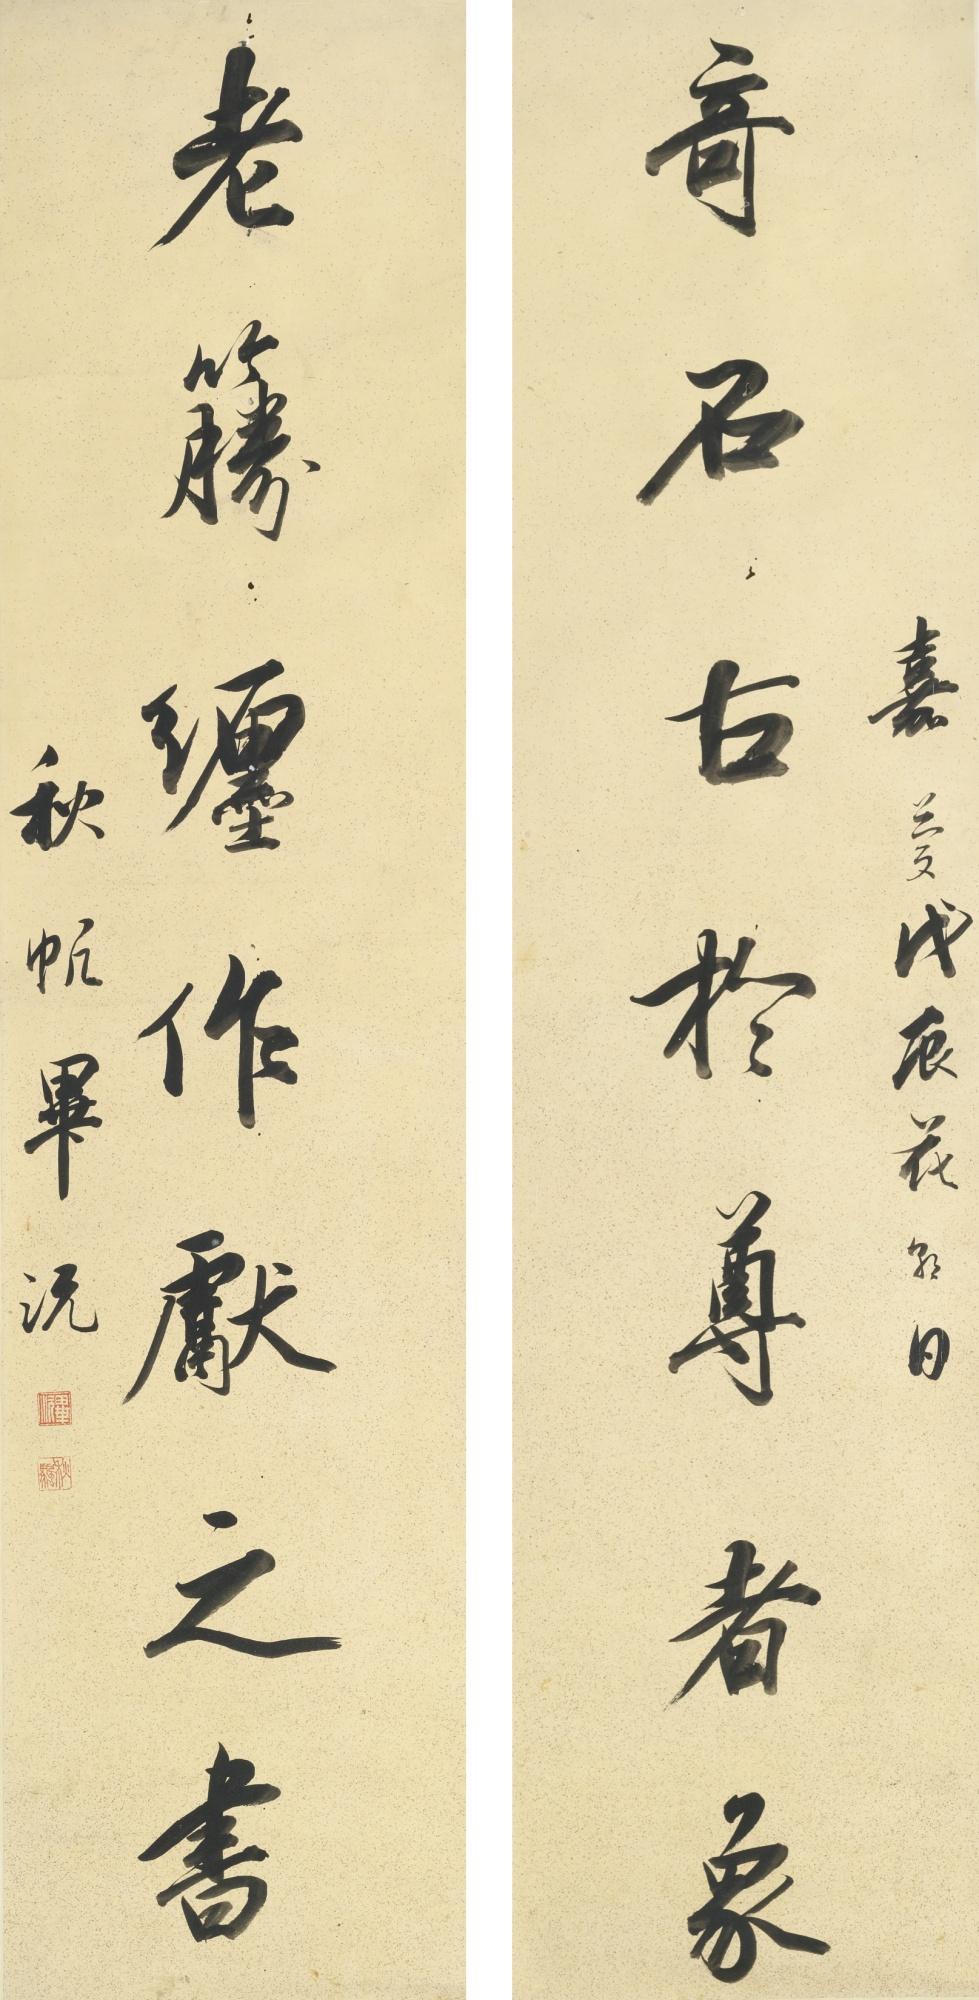 嘉慶戊辰花朝日
奇石古於尊者象
老籐纏作獻之書
秋帆畢沅
畢沅